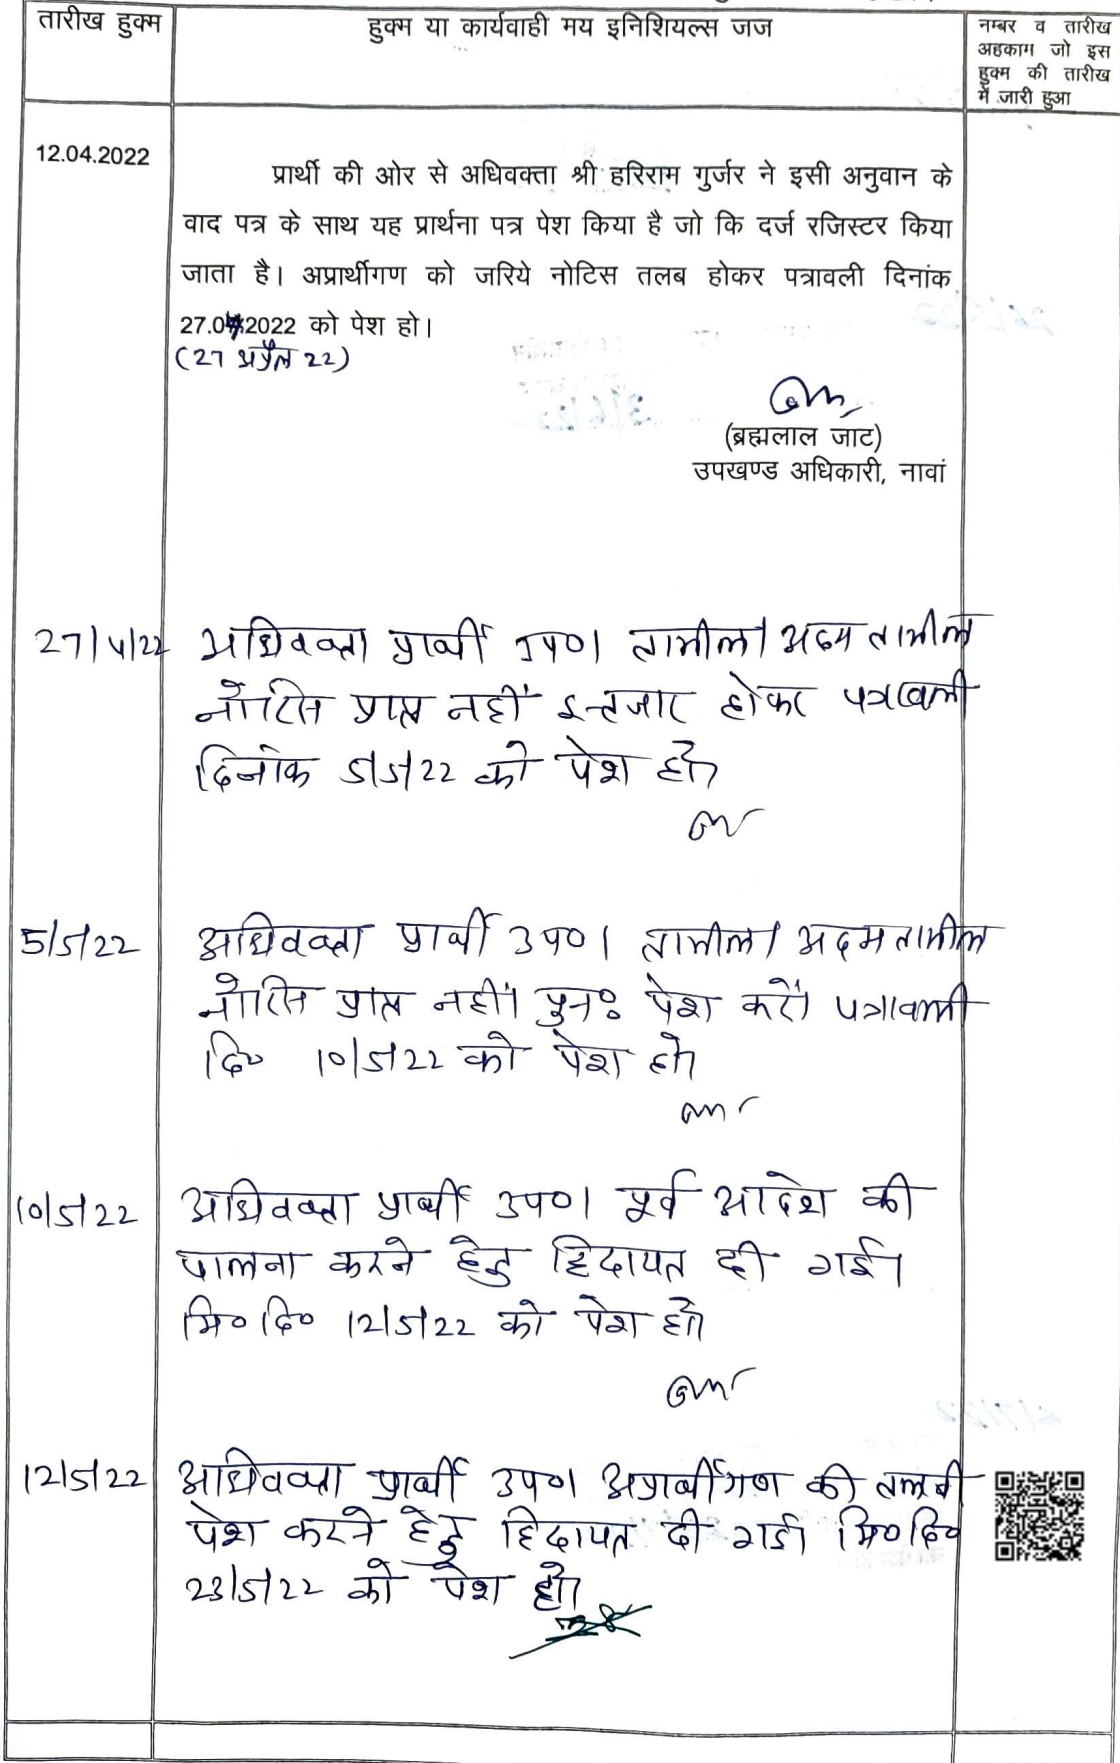 तारीख हुक्म
हुक्म या कार्यवाही मय इनिशियल्स जज
नम्बर व तारीख
अहकाम जो इस
हुक्म की तारीख
में जारी हुआ
12.04.2022
प्रार्थी की ओर से अधिवक्ता श्री हरिराम गुर्जर ने इसी अनुवान के
वाद पत्र के साथ यह प्रार्थना पत्र पेश किया है जो कि दर्ज रजिस्टर किया
जाता है। अप्रार्थीगण को जरिये नोटिस तलब होकर पत्रावली दिनांक
27.04.2022 को पेश हो।
(27 अप्रैल 22)
(ब्रह्मलाल जाट)
उपखण्ड अधिकारी, नावां
27/4/22 अधिवक्ता प्रार्थी उप०। तामील/अदम तामील
नोटिस प्राप्त नहीं इन्तजार होकर पत्रावली
दिनांक 5/5/22 को पेश हो।
5/5/22 अधिवक्ता प्रार्थी उप०। तामील/अदम तामील
नोटिस प्राप्त नहीं। पुनः पेश करें। पत्रावली
दि० 10/5/22 को पेश हो।
10/5/22 अधिवक्ता प्रार्थी उप०। पूर्व आदेश की
पालना करने हेतु हिदायत दी गई।
मि० दि० 12/5/22 को पेश हो।
12/5/22 अधिवक्ता प्रार्थी उप०। अप्रार्थीगण की तलबी
पेश करने हेतु हिदायत दी गई। मि० दि०
23/5/22 को पेश हो।